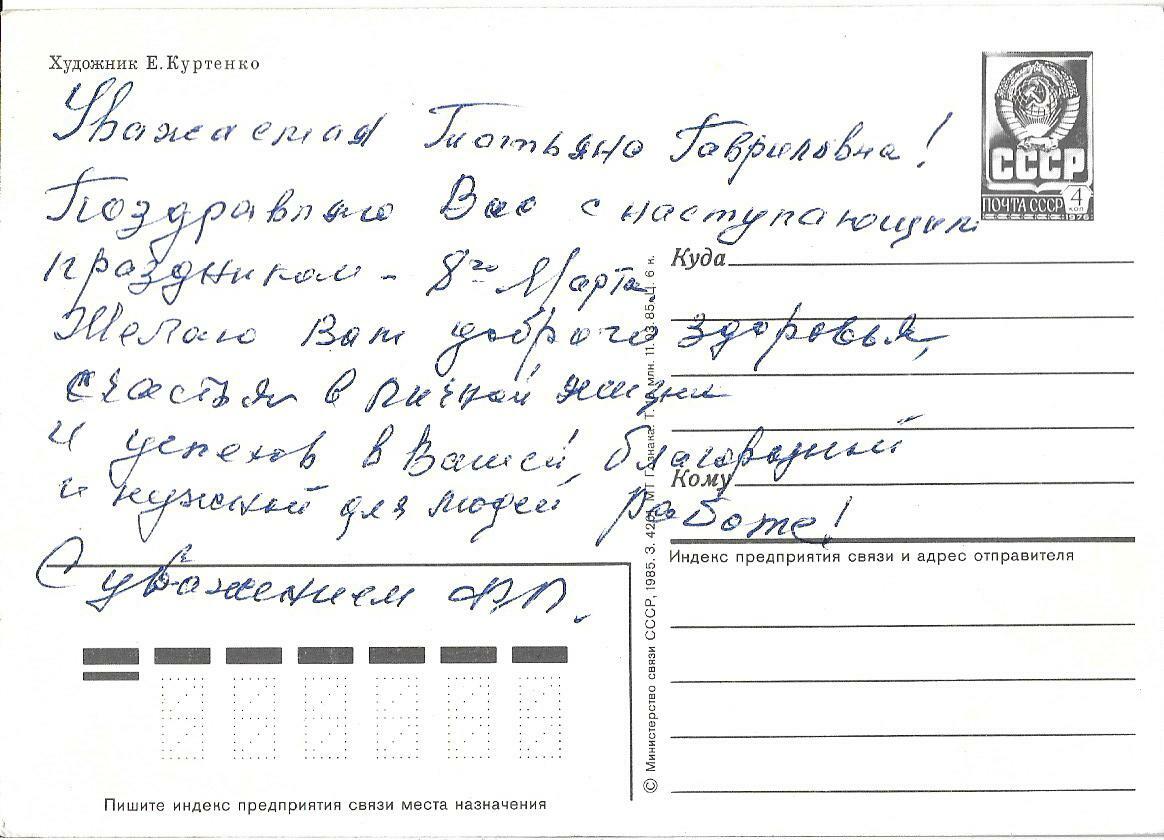 Художник Е. Куртенко
Уважаемая Татьяна Гавриловна!
Поздравляю Вас с наступающим
праздником - 8го Марта.
Желаю Вам доброго здоровья,
счастья в личной жизни
и успехов в Вашей благородной
и нужной для людей работе!
С уважением
СССР
ПОЧТА СССР 4 коп
1976
Куда
Кому
Индекс предприятия связи и адрес отправителя
© Министерство связи СССР, 1985. З. МТ Гознака. Т. млн. 11.03.85. Ц. 6 к.
Пишите индекс предприятия связи места назначения